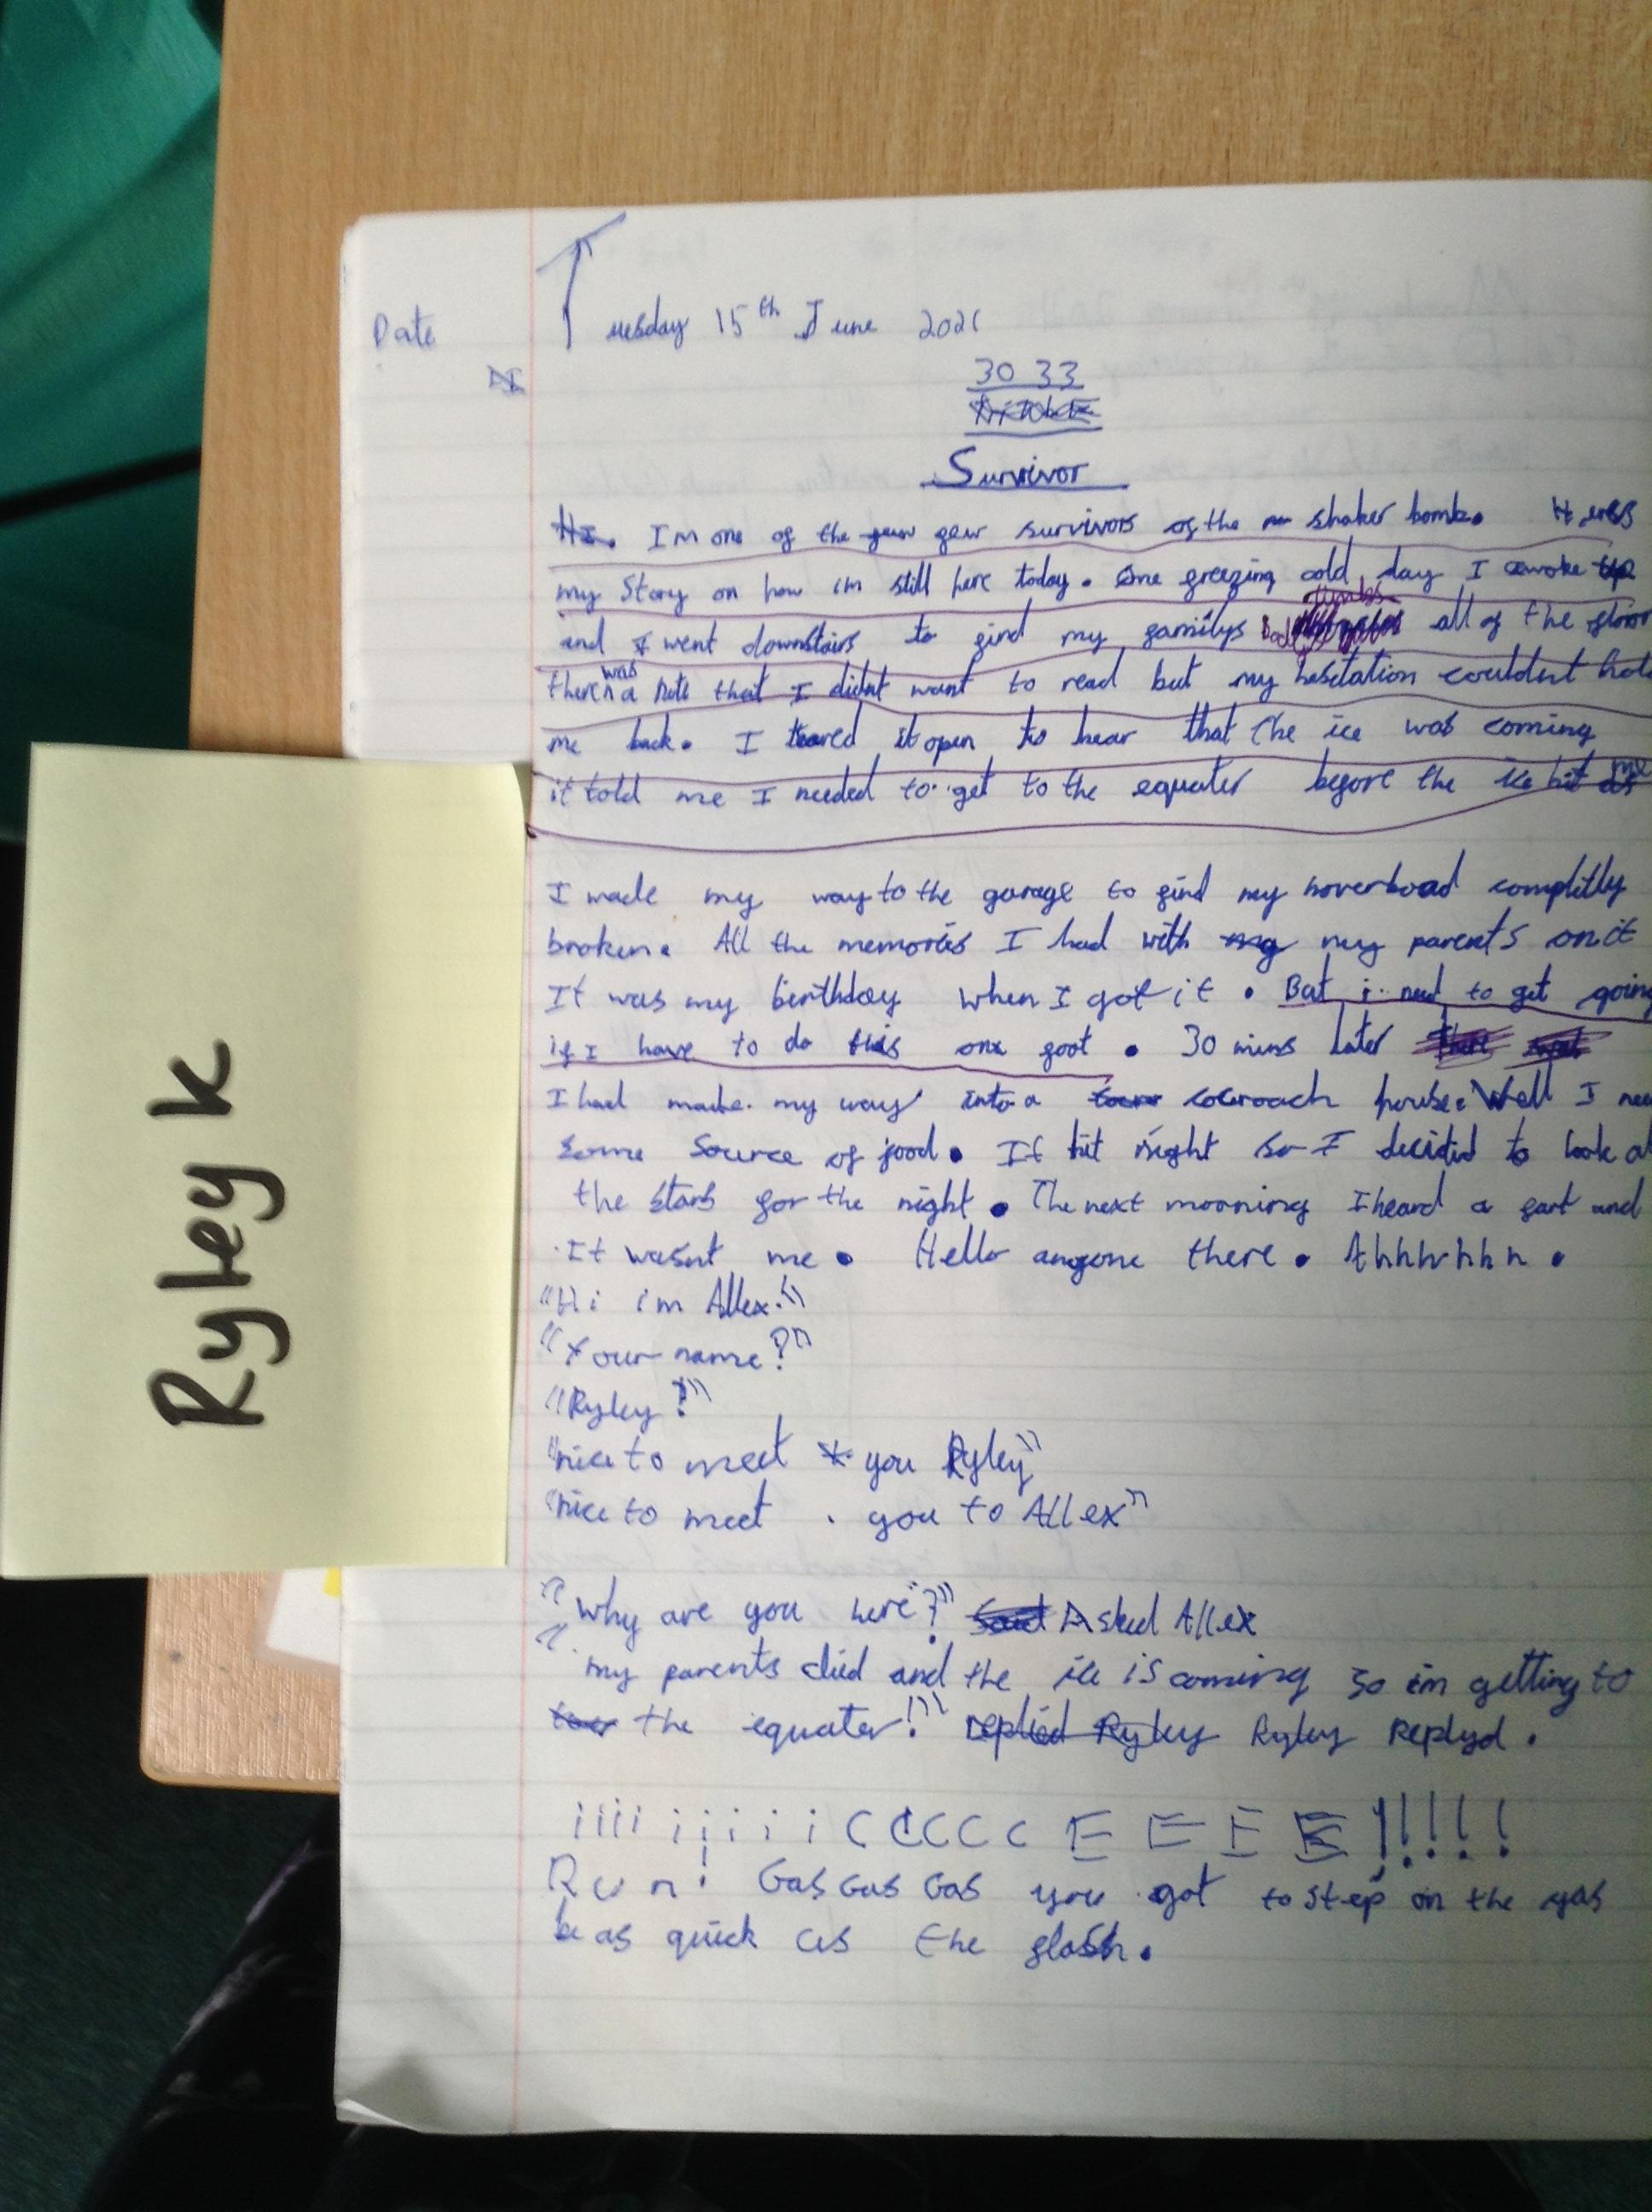 Date
Tuesday 15th June 2021
30 33
Survivor
HI. I'm one of the few survivors of the shaker bomb. Heres
my Story on how im still here today. One freezing cold day I awoke
and I went downstairs to find my familys limbs all of the floor
there was a note that I didnt want to read but my hesitation couldnt hold
me back. I teared it open to hear that the ice was coming
it told me I needed to get to the equater before the ice hit me
I made my way to the garage to find my hoverboad completly
broken. All the memories I had with my parents on it
It was my birthday when I got it. But i need to get going
if I have to do this one foot. 30 mins Later
I had made my way into a cocroach house. Well I
some source of food. It hit night so I decided to look at
the stars for the night. The next moorning I heard a fart and
It wasnt me. Hello anyone there. Ahhhhhh.
"Hi im Allex."
"Your name?"
"Ryley?"
"nice to meet you Ryley"
"nice to meet you to Allex"
"why are you here?" Asked Allex
"my parents died and the ice is coming so im getting to
the equater!" Ryley Replyd.
iiiiiiiiiCCCCCEEEE!!!!!
Run! Gas Gas Gas you got to step on the gas
be as quick as the flash.
Ryley K